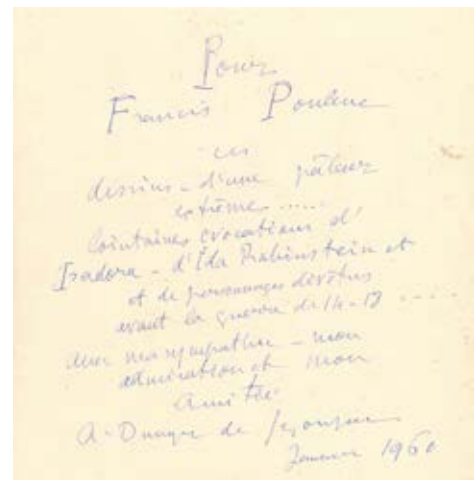 Pour
Francis Poulenc
ces
dessins - d'une pâleur
extrême ......
lointaines évocations d'
Isadora - d'Ida Rubinstein et
et de personnages dévêtus
avant la guerre de 14-18 ....
avec ma sympathie - mon
admiration et mon
amitié
A. Dunoyer de Segonzac
Janvier 1960